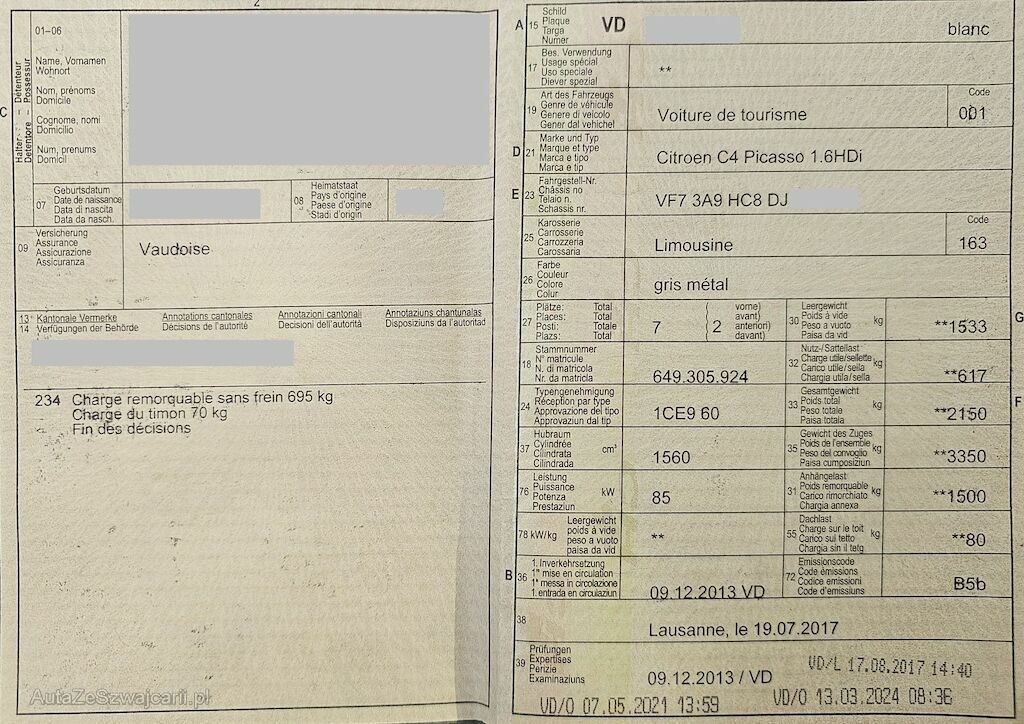 2
C
Halter – Détenteur
Detentore – Possessur
01–06
Name, Vornamen
Wohnort
Nom, prénoms
Domicile
Cognome, nomi
Domicilio
Num, prenums
Domicil
07
Geburtsdatum
Date de naissance
Data di nascita
Data da nasch.
08
Heimatstaat
Pays d'origine
Paese d'origine
Stadi d'origin
09
Versicherung
Assurance
Assicurazione
Assicuranza
Vaudoise
13
14
Kantonale Vermerke
Verfügungen der Behörde
Annotations cantonales
Décisions de l'autorité
Annotazioni cantonali
Decisioni dell'autorità
Annotaziuns chantunalas
Disposiziuns da l'autoritad
234 Charge remorquable sans frein 695 kg
Charge du timon 70 kg
Fin des décisions
AutaZeSzwajcarii.pl
A 15
Schild
Plaque
Targa
Numer
VD
blanc
17
Bes. Verwendung
Usage spécial
Uso speciale
Diever spezial
**
19
Art des Fahrzeugs
Genre de véhicule
Genere di veicolo
Gener dal vehichel
Voiture de tourisme
Code
001
D 21
Marke und Typ
Marque et type
Marca e tipo
Marca e tip
Citroen C4 Picasso 1.6HDi
E 23
Fahrgestell-Nr.
Châssis no
Telaio n.
Schassis nr.
VF7 3A9 HC8 DJ
25
Karosserie
Carrosserie
Carrozzeria
Carossaria
Limousine
Code
163
26
Farbe
Couleur
Colore
Colur
gris métal
27
Plätze: Total
Places: Total
Posti: Totale
Plazs: Total
7
( 2
vorne)
avant)
anteriori)
davant)
30
Leergewicht
Poids à vide
Peso a vuoto
Paisa da vid
kg
**1533
G
18
Stammnummer
N° matricule
N. di matricola
Nr. da matricla
649.305.924
32
Nutz-/Sattellast
Charge utile/sellette
Carico utile/sella
Chargia utila/sella
kg
**617
24
Typengenehmigung
Réception par type
Approvazione del tipo
Approvaziun dal tip
1CE9 60
33
Gesamtgewicht
Poids total
Peso totale
Paisa totala
kg
**2150
F
37
Hubraum
Cylindrée
Cilindrata
Cilindrada
cm³
1560
35
Gewicht des Zuges
Poids de l'ensemble
Peso del convoglio
Paisa cumposiziun
kg
**3350
76
Leistung
Puissance
Potenza
Prestaziun
kW
85
31
Anhängelast
Poids remorquable
Carico rimorchiato
Chargia annexa
kg
**1500
78 kW/kg
Leergewicht
poids à vide
peso a vuoto
paisa da vid
**
55
Dachlast
Charge sur le toit
Carico sul tetto
Chargia sin il tetg
kg
**80
B 36
1. Inverkehrsetzung
1re mise en circulation
1a messa in circolazione
1. entrada en circulaziun
09.12.2013 VD
72
Emissionscode
Code émissions
Codice emissioni
Code d'emissiuns
B5b
38
Lausanne, le 19.07.2017
39
Prüfungen
Expertises
Perizie
Examinaziuns
09.12.2013 / VD
VD/L 17.08.2017 14:40
VD/O 07.05.2021 13:59
VD/O 13.03.2024 08:36